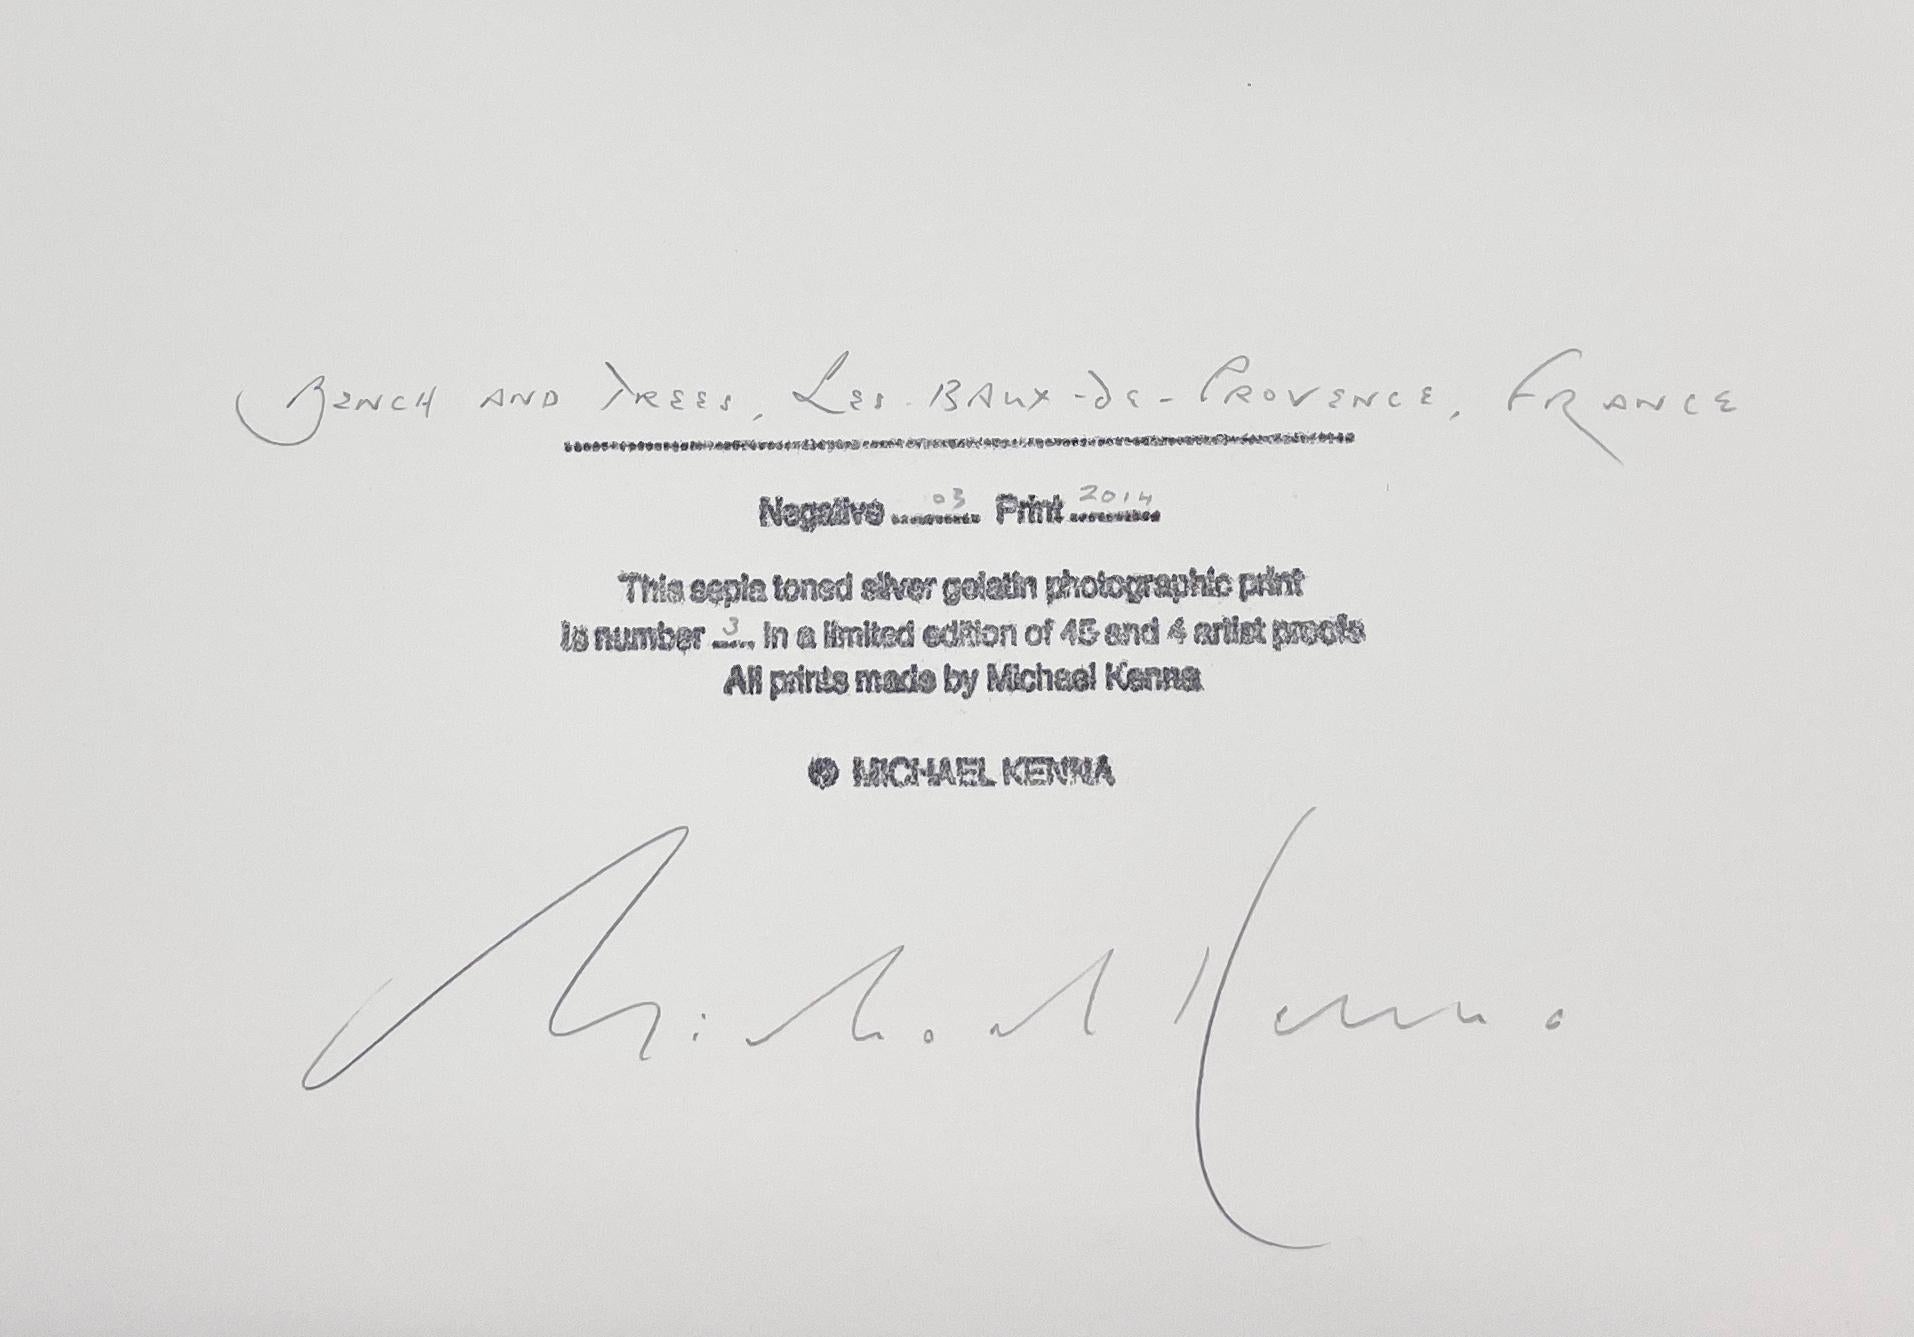 Bench and Trees, Les Baux-de-Provence, France
Negative 03 Print 2014
This sepia toned silver gelatin photographic print
is number 3 in a limited edition of 45 and 4 artist proofs
All prints made by Michael Kenna
© MICHAEL KENNA
Michael Kenna